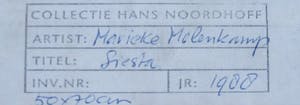 COLLECTIE HANS NOORDHOFF
ARTIST: Marieke Molenkamp
TITEL: Siesta
INV.NR: JR: 1988
50x70cm